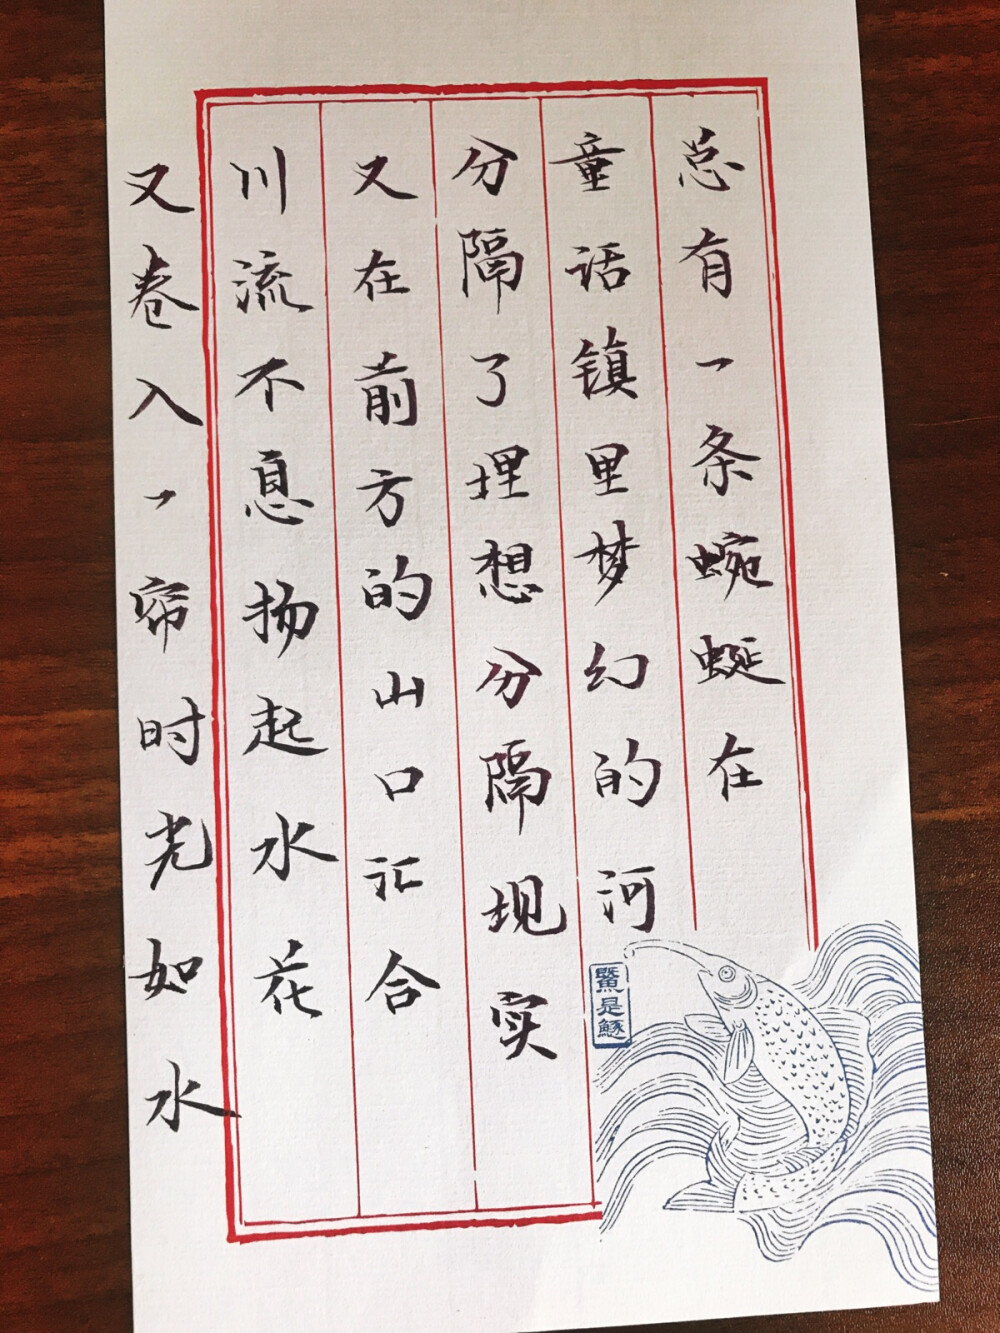 总有一条蜿蜒在
童话镇里梦幻的河
分隔了理想分隔现实
又在前方的山口汇合
川流不息扬起水花
又卷入一帘时光如水
鱀是鱁